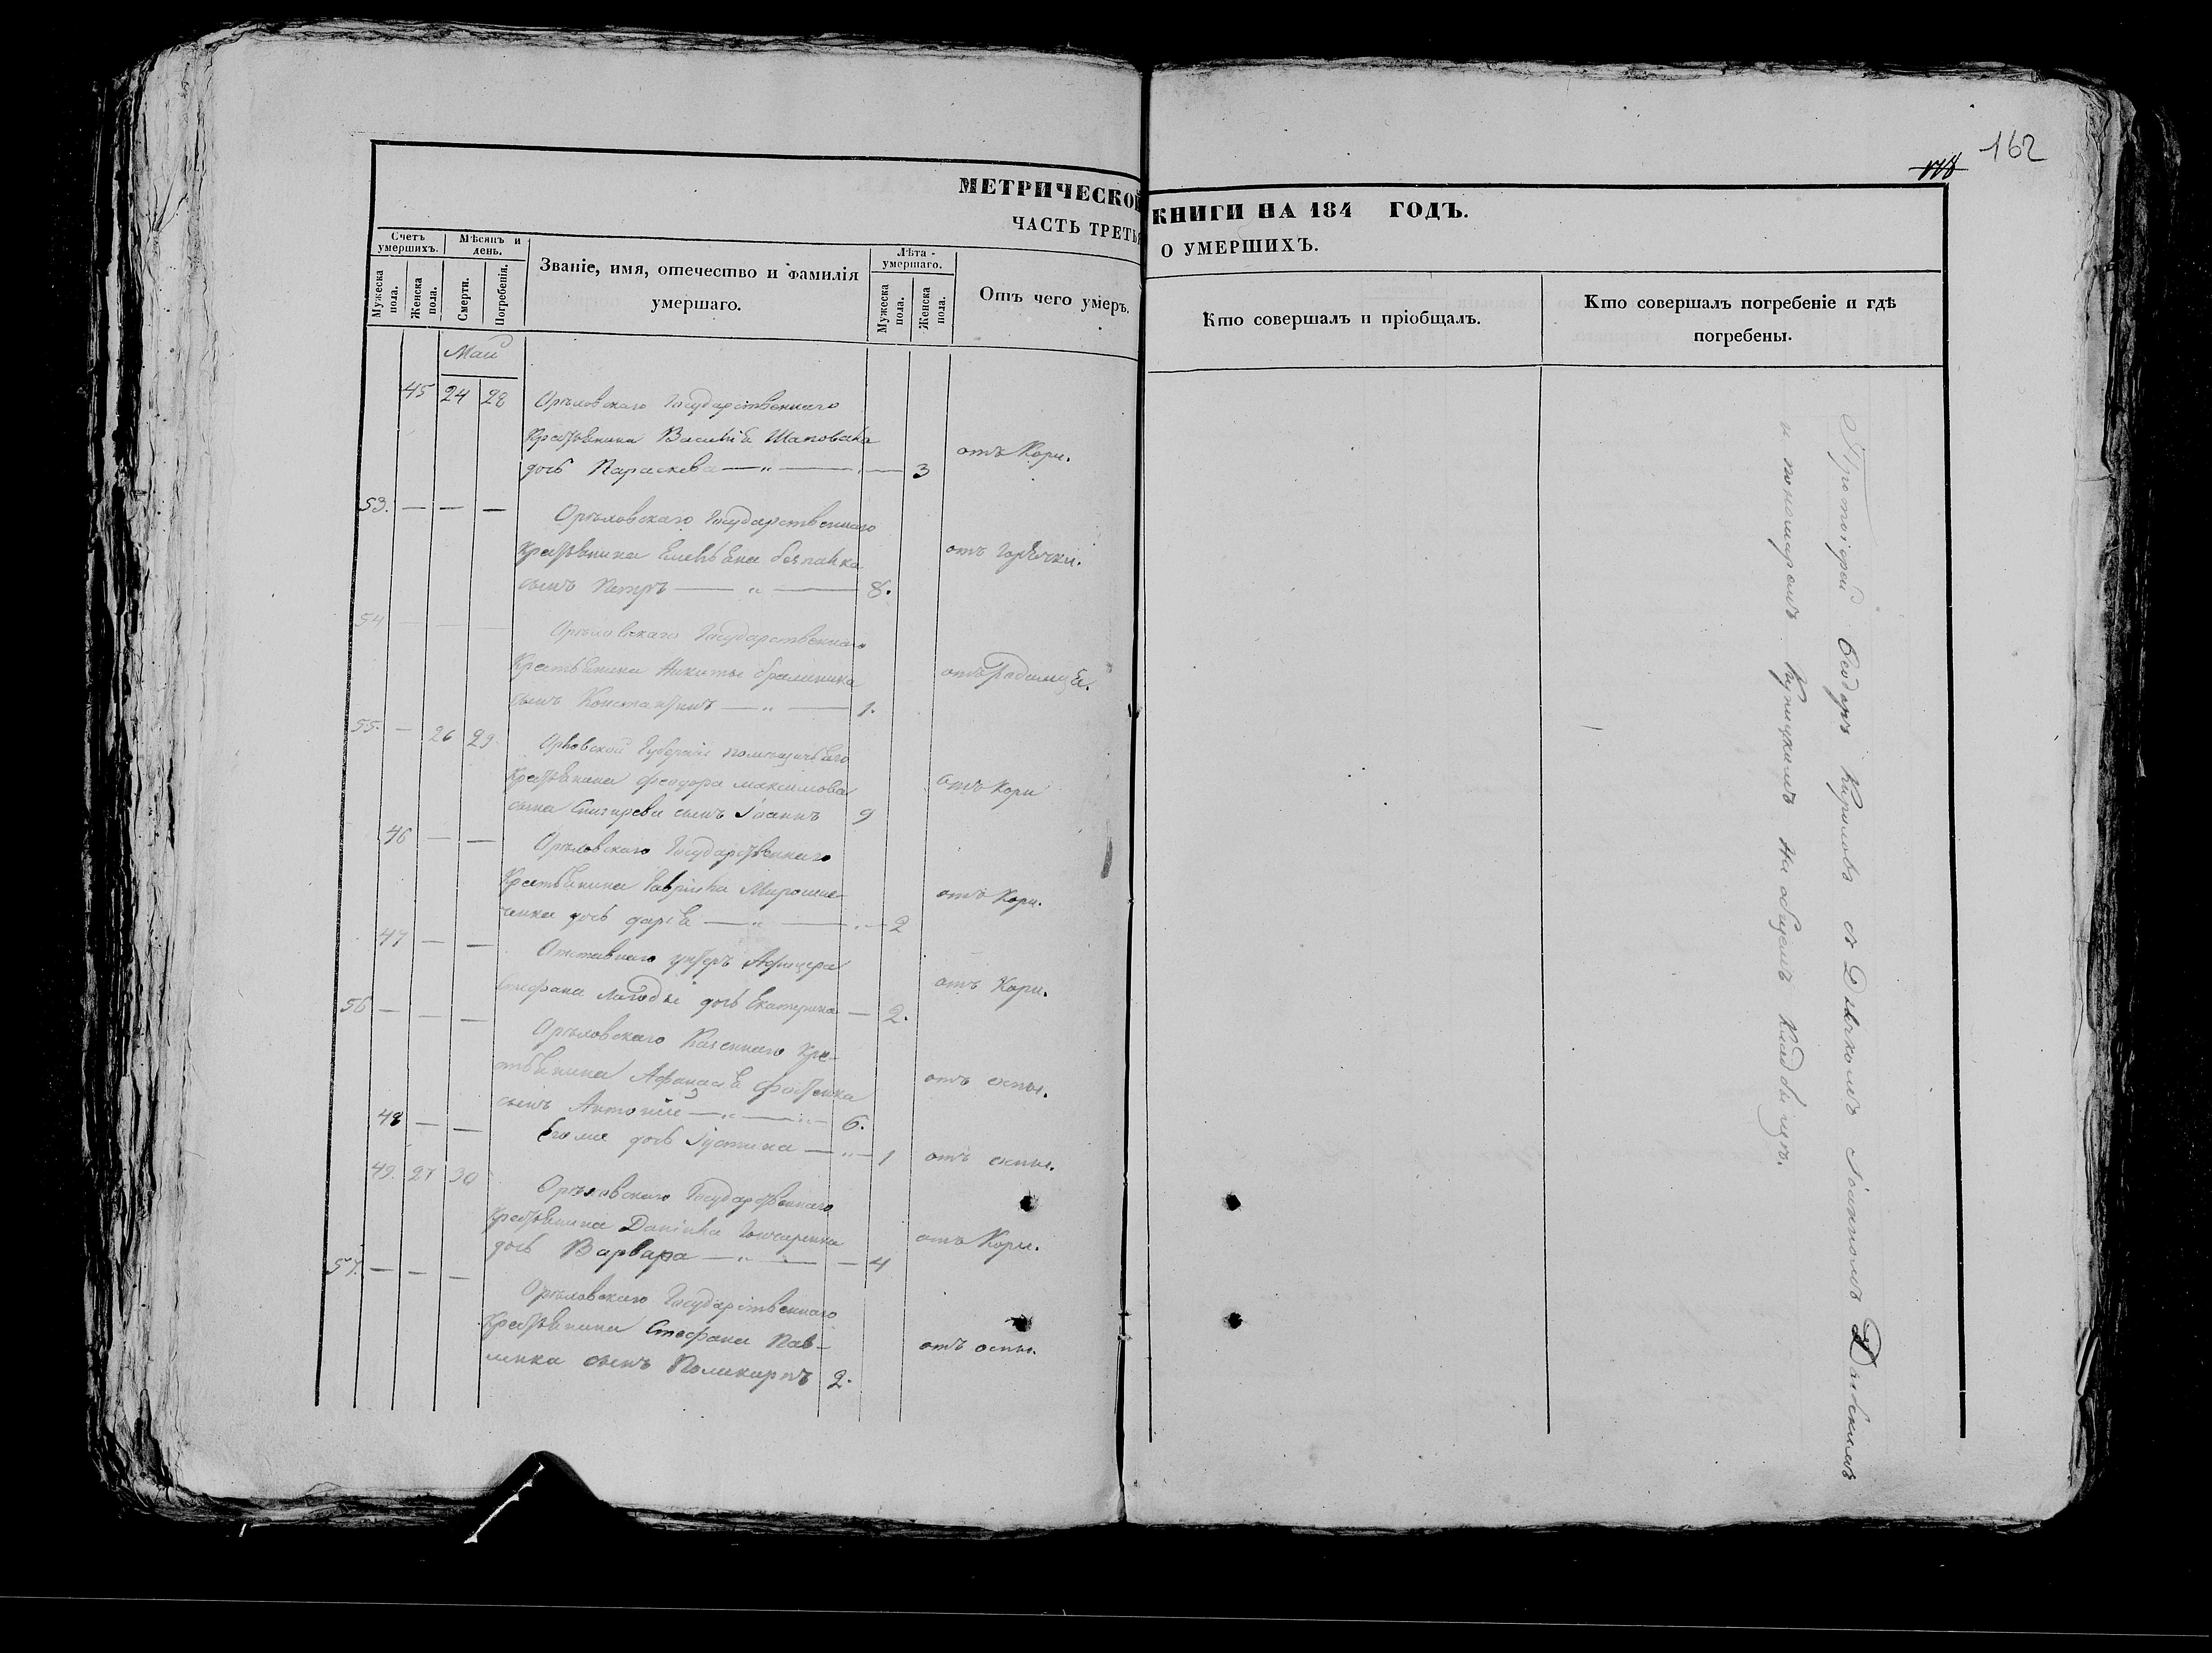 162
118
МЕТРИЧЕСКОЙ КНИГИ НА 184 ГОДЪ.
ЧАСТЬ ТРЕТЬЯ О УМЕРШИХЪ.
Счетъ умершихъ.
Мужеска пола.
Женска пола.
Мѣсяцъ и день.
Смерти.
Погребенія.
Званіе, имя, отечество и фамилія
умершаго.
Лѣта умершаго.
Мужеска пола.
Женска пола.
Отъ чего умеръ.
Кто совершалъ и пріобщалъ.
Кто совершалъ погребеніе и гдѣ
погребены.
Май
45 24 28 Орѣховскаго Государственнаго
Крестьянина Василія Шаповала
дочь Параскева — „ — 3 отъ Кори.
53. — — — Орѣховскаго Государственнаго
Крестьянина Емельяна
сынъ Петръ — „ — 8. отъ Горячки.
54 — — — Орѣховскаго Государственнаго
Крестьянина Никиты
сынъ Константинъ — „ — 1. отъ
55. — 26 29 Губерніи помѣщичьяго
Крестьянина Феодора Максимова
сына сынъ Іоаннъ 9 отъ Кори
46 — — Орѣховскаго Государственнаго
Крестьянина Гавріила Мирошни-
ченка дочь Дарія — „ — 2 отъ Кори.
47 — — Отставнаго унтеръ Афицера
Стефана дочь Екатерина — 2. отъ Кори.
56 — — — Орѣховскаго Казеннаго Кре-
стьянина Афанасія
сынъ Антоній — „ — 6. отъ оспы.
48 — — Его же дочь Іустина — „ — 1 отъ оспы.
49. 27 30 Орѣховскаго Государственнаго
Крестьянина Даніила Гончаренка
дочь Варвара — „ — 4 отъ Кори.
57. — — — Орѣховскаго Государственнаго
Крестьянина Стефана Пав-
ленка сынъ Поликарпъ 2. отъ оспы.
Протоіерей Ѳеодоръ Кириловъ съ Дьячкомъ Іоанномъ
и пономаремъ На общемъ Кладбищѣ.